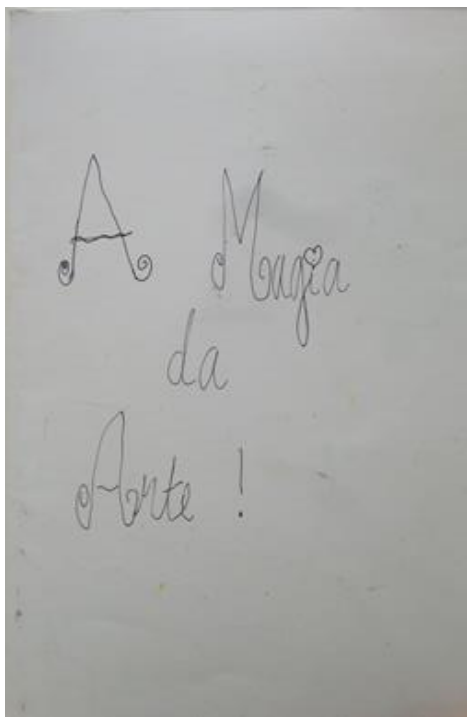 A Magia
da
Arte !